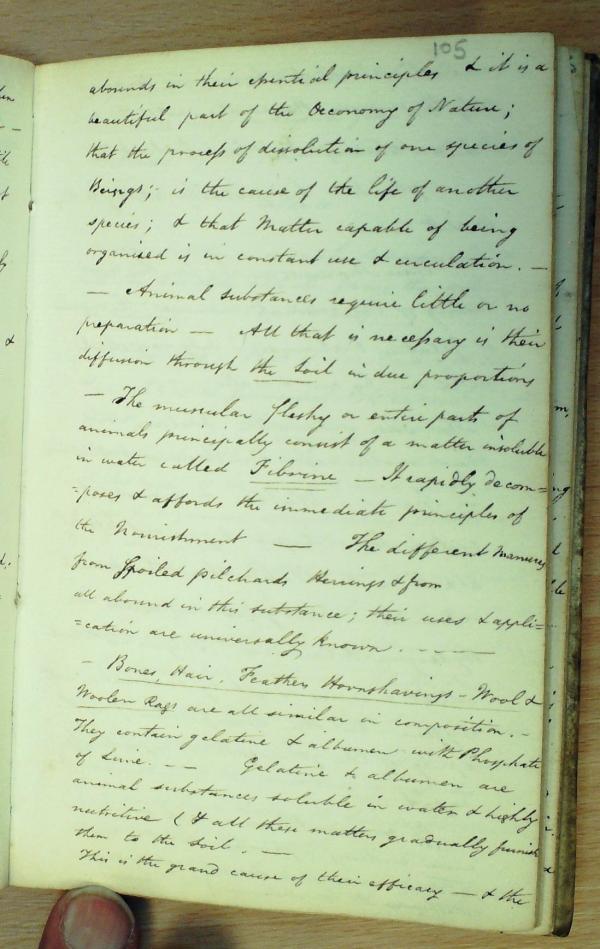 105
abounds in their essential principles & it is a
beautiful part of the Oeconomy of Nature;
that the process of dissolution of one species of
Beings; is the cause of the life of another
species; & that Matter capable of being
organised is in constant use & circulation. —
— Animal substances require little or no
preparation — All that is necessary is their
diffusion through the Soil in due proportions
— The muscular fleshy or entire parts of
animals principally consist of a matter insoluble
in water called Fibrine — It rapidly decom=
=poses & affords the immediate principles of
the Nourishment — The different Manures
from Spoiled pilchards Herrings & from
all abound in this substance; their uses & appli=
=cation are universally known. — — —
— Bones, Hair, Feathers Hornshavings - Wool &
Woolen Rags are all similar in composition. —
They contain gelatine & albumen with Phosphate
of Lime. — — Gelatine & albumen are
animal substances soluble in water & highly
nutritive (& all these matters gradually furnish
them to the Soil. —
This is the grand cause of their efficacy — & the